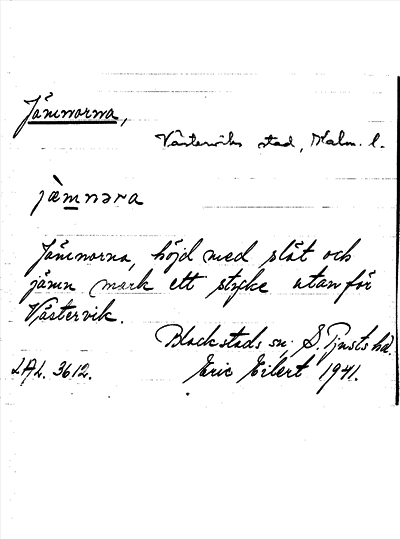 Jämnorna,
Västerviks stad, Kalm. l.
jæ̀mnəra
Jämnorna, höjd med slät och
jämn mark ett stycke utanför
Västervik.
Blackstads sn, S. Tjusts hd.
LAL. 3612. Eric Eilert 1941.